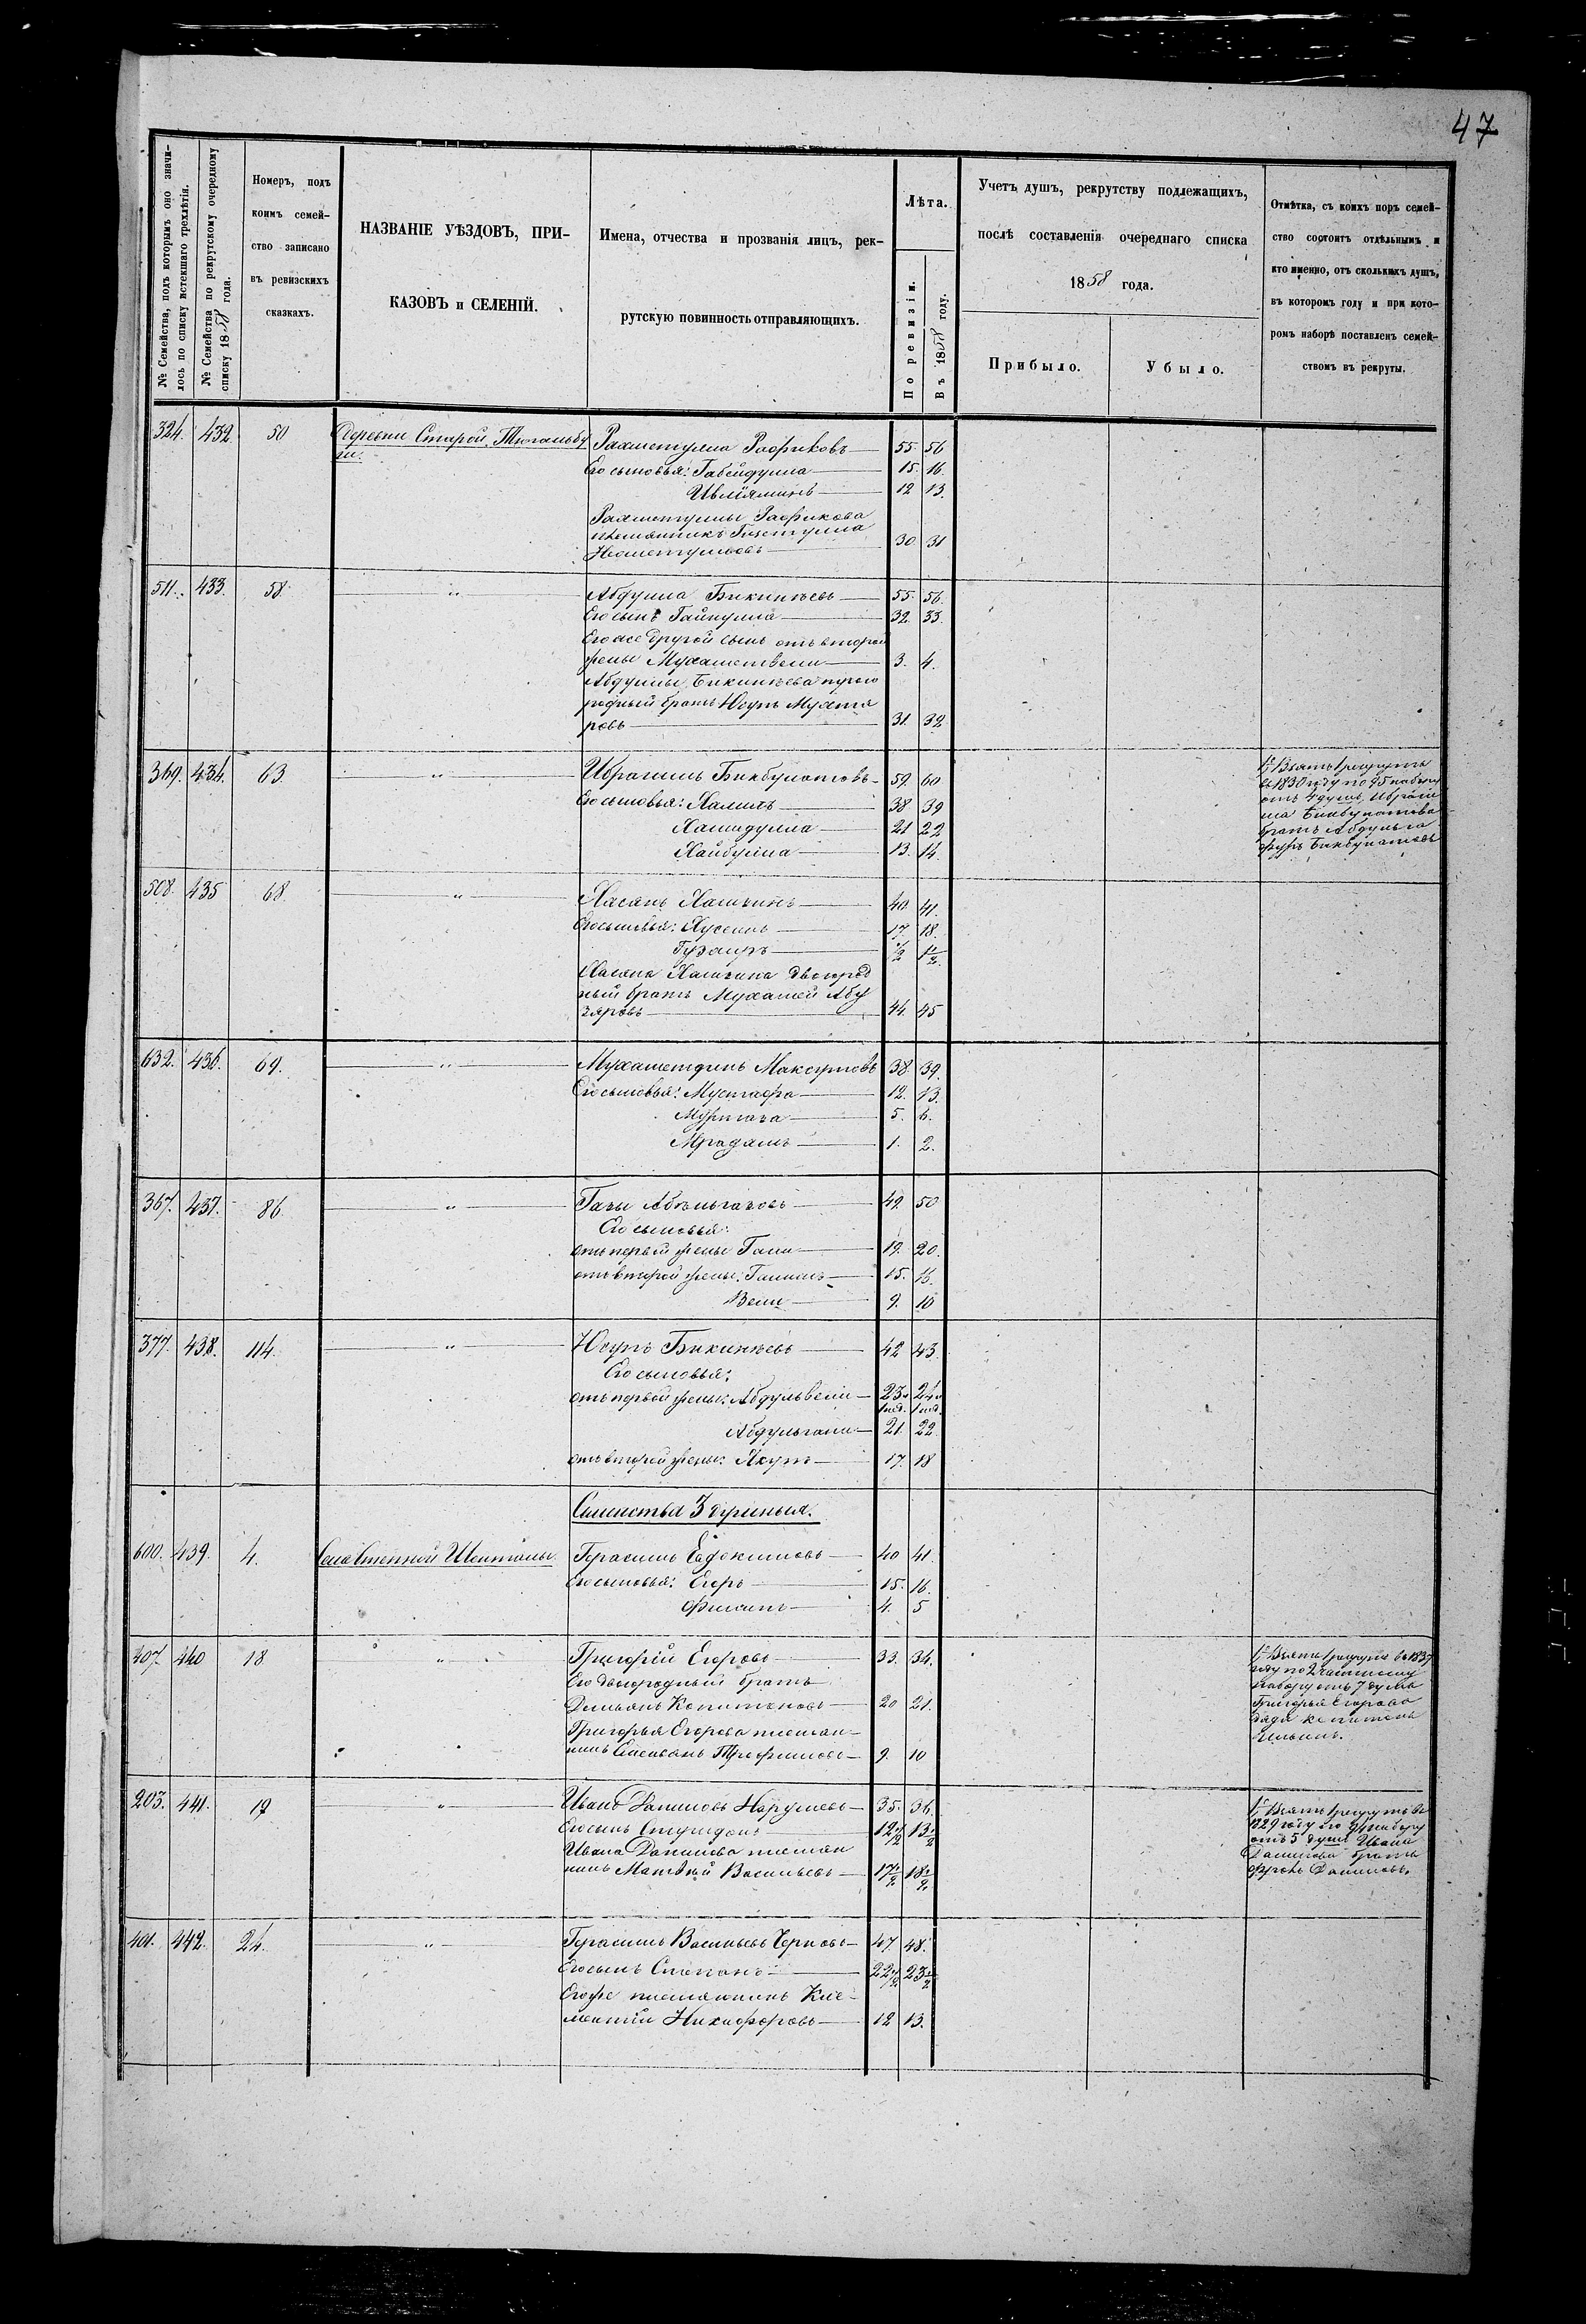 47
№ Семейства, подъ которымъ оно значи-
лось по списку истекшаго трехлѣтія.
№ Семейства по рекрутскому очередному
списку 1858 года.
Номеръ, подъ
коимъ семей-
ство записано
въ ревизскихъ
сказкахъ.
НАЗВАНІЕ УѢЗДОВЪ, ПРИ-
КАЗОВЪ и СЕЛЕНІЙ.
Имена, отчества и прозванія лицъ, рек-
рутскую повинность отправляющихъ.
Лѣта.
По ревизіи.
Въ 1858 году.
Учетъ душъ, рекрутству подлежащихъ,
послѣ составленія очереднаго списка
1858 года.
Прибыло.
Убыло.
Отмѣтка, съ коихъ поръ семей-
ство состоитъ отдѣльнымъ и
кто именно, отъ сколькихъ душъ,
въ которомъ году и при кото-
ромъ наборѣ поставленъ семей-
ствомъ въ рекруты.
324. 432. 50 Деревни Старой Рахметулла Рафиковъ 55. 56
Его сыновья: Габейдулла 15. 16.
12 13.
Рахметуллы Рафикова
племянникъ
30. 31
511. 433. 58. " Абдулла Бикинѣевъ 55. 56.
Его сынъ Гайнулла 32. 33.
Его же другой сынъ отъ второй
жены Мухаметвели 3. 4.
Абдуллы Бикинѣева
родный братъ Юсупъ Мухтя
ровъ 31. 32
369. 434. 63. " Ибрагимъ Бикбулатовъ 59. 60
Его сыновья: Халитъ 38 39
Хамидулла 21 22
Хайбулла 13. 14.
Взятъ в рекруты
въ 1830 году по 95 набору
отъ 4 душъ Ибраги
ма Бикбулатова
братъ
Бикбулатовъ
508. 435 68. " Хасянъ 40 41.
Его сыновья: Хусеинъ 17. 18.
Хасяна двоюрод
ный братъ Мухамей Абу
бяровъ 44. 45
632. 436. 69. " Мухаметдинъ Максутовъ 38. 39.
Его сыновья: Мустафа 12. 13.
Муртаза 5. 6.
1. 2.
367. 437. 86. " 49. 50
Его сыновья:
отъ первой жены Гани 19. 20.
отъ второй жены: 15. 16.
Вели 9. 10
377. 438. 114. " Юсупъ Бикинѣевъ 42 43.
Его сыновья:
отъ первой жены: Абдулвели 23. 24.
Абдулгани 21. 22.
отъ второй жены: Якупъ 17. 18
Семейства 3 душныя.
600. 439. 4. Села Степной Шентолы Герасимъ Евдокимовъ 40 41.
Его сыновья: Егоръ 15. 16.
Филипъ 4. 5
407. 440 18 " Григорій Егоровъ 33. 34.
Его двоюродный братъ
Демьянъ Капитоновъ 20 21.
Григорья Егорова племян-
никъ Степанъ Трофимовъ 9. 10
Взятъ в рекруты въ 1837
году по 2 частному
набору отъ 7 душъ
Григорья Егорова
дядя Капитонъ
203. 441. 19 " Иванъ Даниловъ 35. 36.
Его сынъ Спиридонъ 12 1/2 13 1/2
Ивана Данилова племян
никъ Матвѣй Васильевъ 17 1/2 18 1/2
Взятъ в рекруты въ
1829 году по 94 набору
отъ 5 душъ Ивана
Данилова братъ
Фролъ Даниловъ.
401. 442. 24. " Герасимъ Васильевъ Черновъ 47. 48.
Его сынъ Степанъ 22 1/2 23 1/2
Его же племянникъ Кле-
ментій Никифоровъ 12 13.